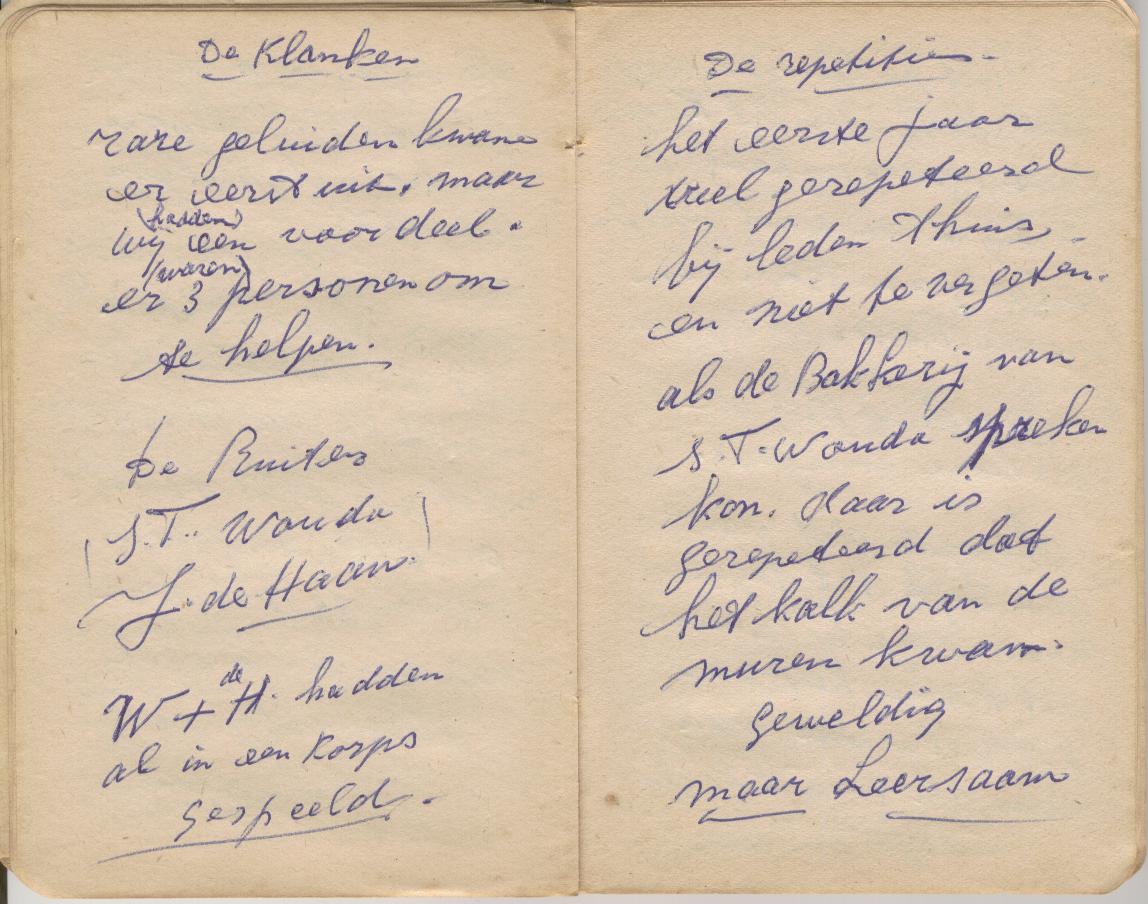 De Klanken
rare geluiden kwame
er eerst uit. maar
(hadden)
wij een voordeel.
(waren)
er 3 personen om
te helpen.
De Ruiter
(S.T. Wouda)
J. de Haan.
de
W + H. hadden
al in een Korps
gespeeld.
De repetities.
het eerste jaar
veel gerepeteerd
bij leden thuis,
en niet te vergeten.
als de Bakkerij van
S.T. Wouda spreken
kon. daar is
gerepeteerd dat
het kalk van de
muren kwam.
geweldig
maar Leersaam